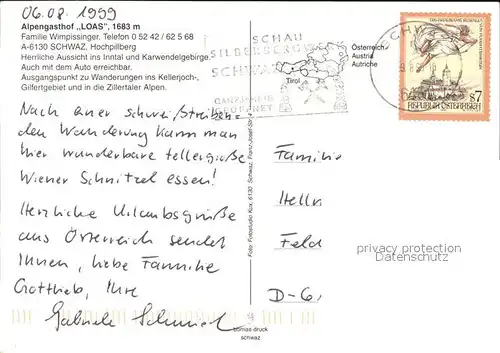 06.08.1999
Alpengasthof „LOAS", 1683 m
Familie Wimpissinger. Telefon 0 52 42 / 62 5 68
A-6130 SCHWAZ, Hochpillberg
Herrliche Aussicht ins Inntal und Karwendelgebirge.
Auch mit dem Auto erreichbar.
Ausgangspunkt zu Wanderungen ins Kellerjoch-,
Gilfertgebiet und in die Zillertaler Alpen.
SCHAU
SILBERBERGWERK
SCHWAZ
Tirol
GANZJÄHRIG
GEÖFFNET
Österreich
Austria
Autriche
SCHWAZ
S7
REPUBLIK ÖSTERREICH
Nach einer schweißtreiben-
den Wanderung kann man
hier wunderbare tellergroße
Wiener Schnitzel essen!
Herzliche Urlaubsgrüße
aus Österreich sendet
Ihnen, liebe Familie
Gottlieb, Ihre
Gabriele Schmiel
Foto: Fotostudio Kox, 6130 Schwaz, Franz-Josef-Str.
Familie
Helln
Feld
D-6
privacy protection
Datenschutz
bernas druck
schwaz